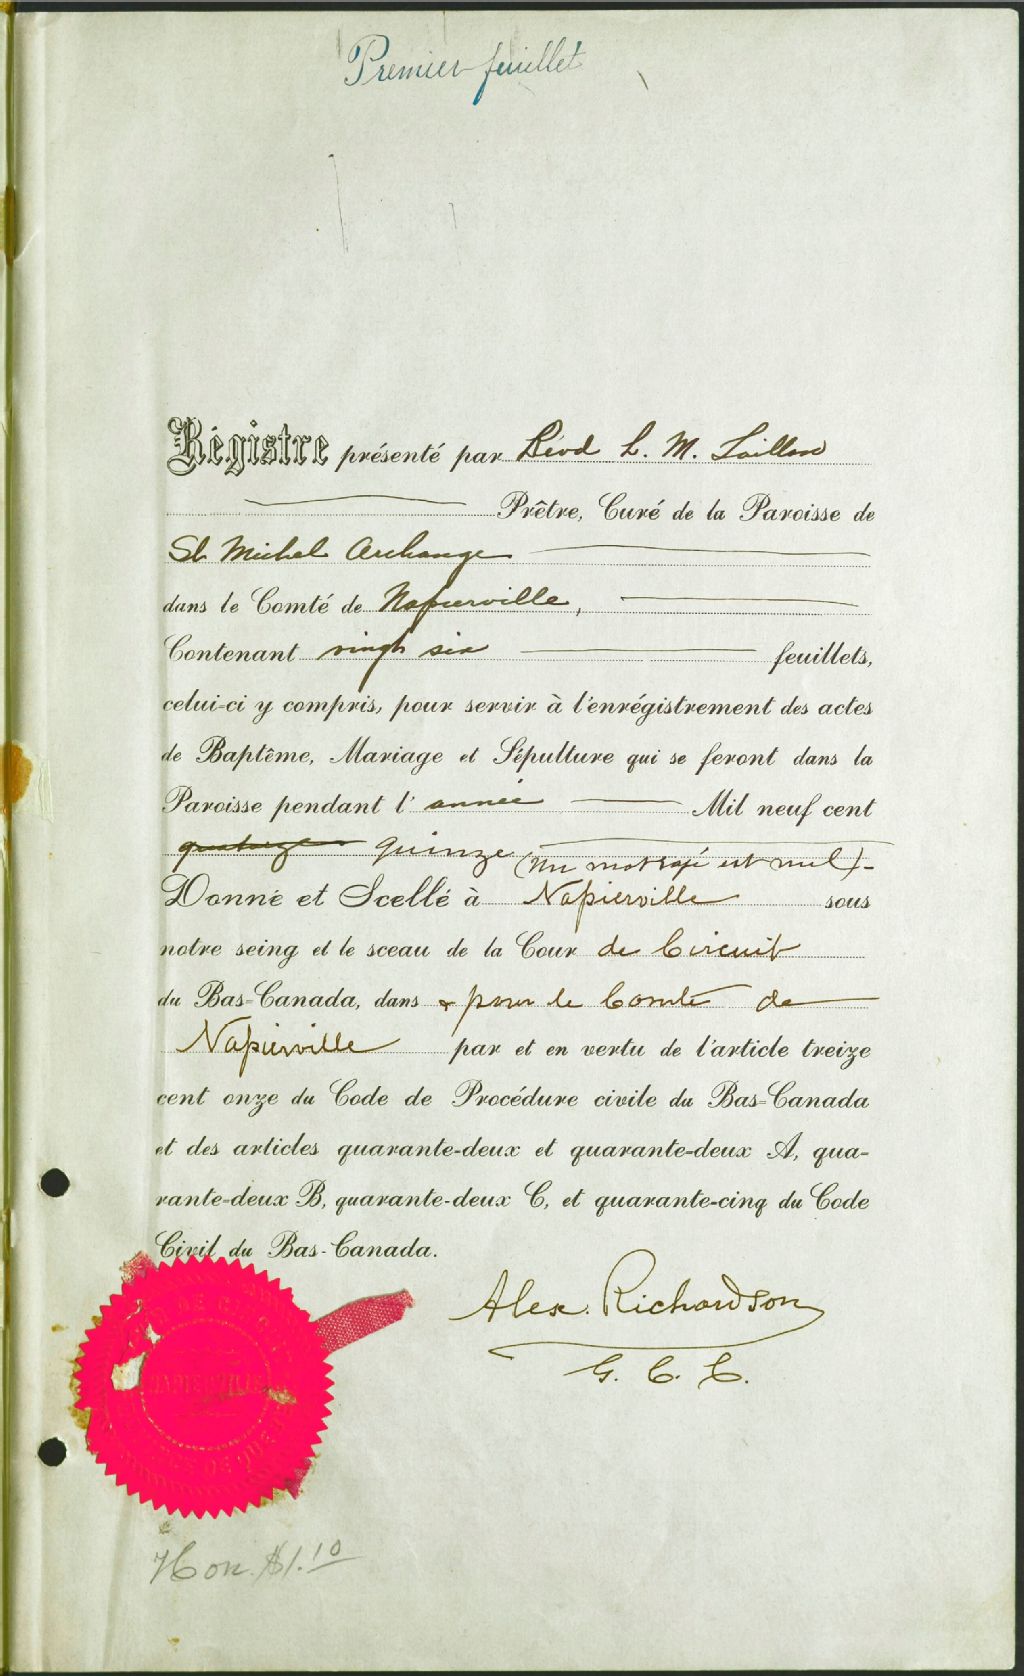 Premier feuillet
Régistre présenté par Révd L. M. Taillon
Prêtre, Curé de la Paroisse de
St Michel Archange
dans le Comté de Napierville,
Contenant vingt six feuillets,
celui-ci y compris, pour servir à l'enrégistrement des actes
de Baptême, Mariage et Sépulture qui se feront dans la
Paroisse pendant l'année Mil neuf cent
quatorze quinze (un mot rayé est nul)
Donné et Scellé à Napierville sous
notre seing et le sceau de la Cour de Circuit
du Bas-Canada, dans & pour le Comté de
Napierville par et en vertu de l'article treize
cent onze du Code de Procédure civile du Bas-Canada
et des articles quarante-deux et quarante-deux A, qua-
rante-deux B, quarante-deux C, et quarante-cinq du Code
Civil du Bas-Canada.
Alex. Richardson
G. C. C.
NAPIERVILLE
Hon. $1.10